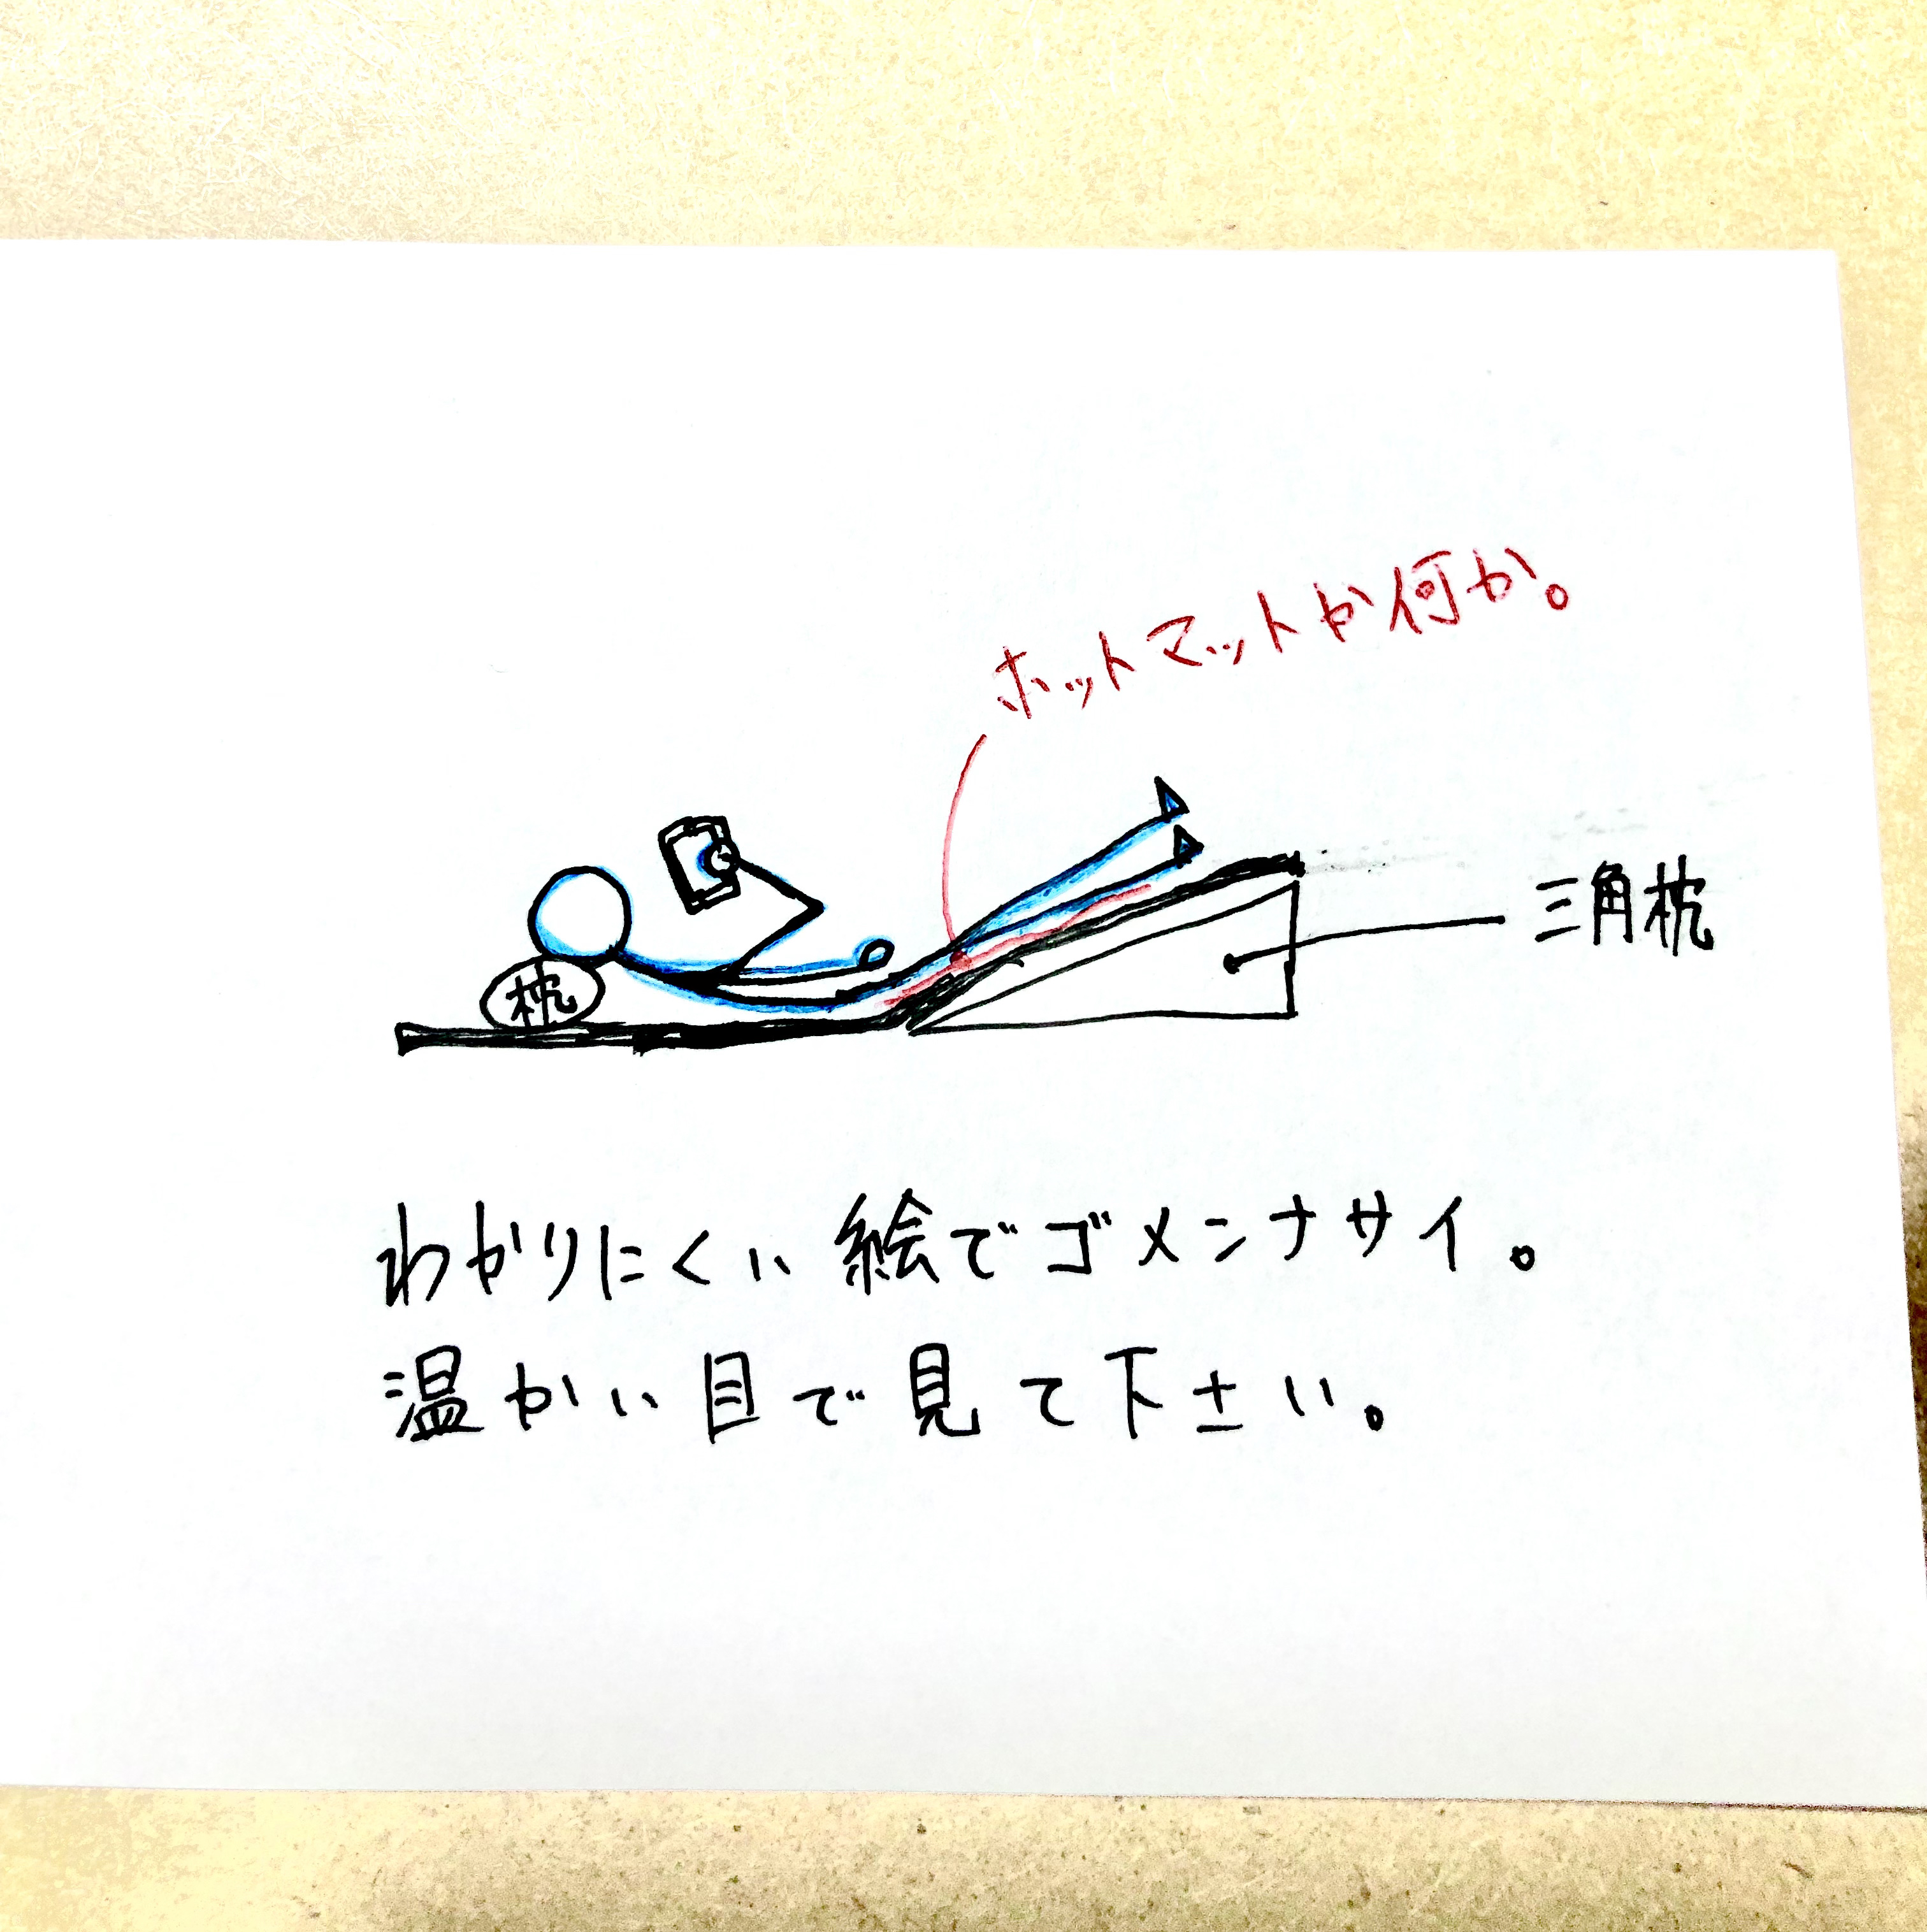 ホットマットか何か。
三角枕
枕
わかりにくい絵でゴメンナサイ。
温かい目で見て下さい。